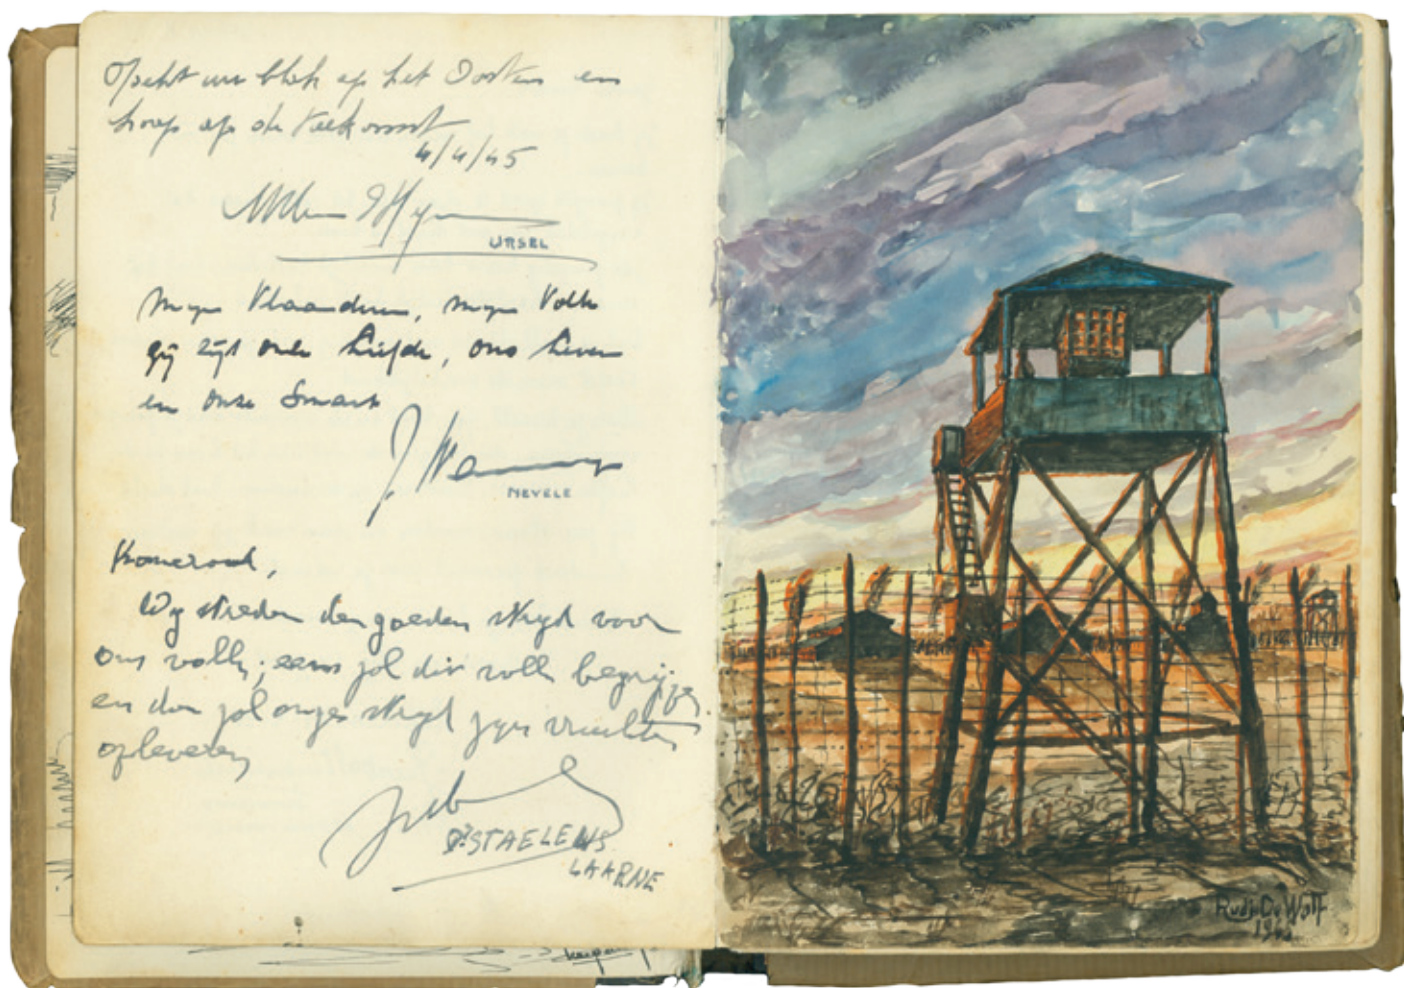 uw blik op het Oosten en
hoop op de toekomst
4/4/45
URSEL
Mijn Vlaanderen, mijn Volk
gij zijt onze liefde, ons leven
en onze Smart
NEVELE
Kameraad,
Wij streden den goeden strijd voor
ons volk; eens zal dit volk begrijpen
en dan zal onze strijd zijn vruchten
opleveren
STAELENS
LAARNE
Rudi De Wolf